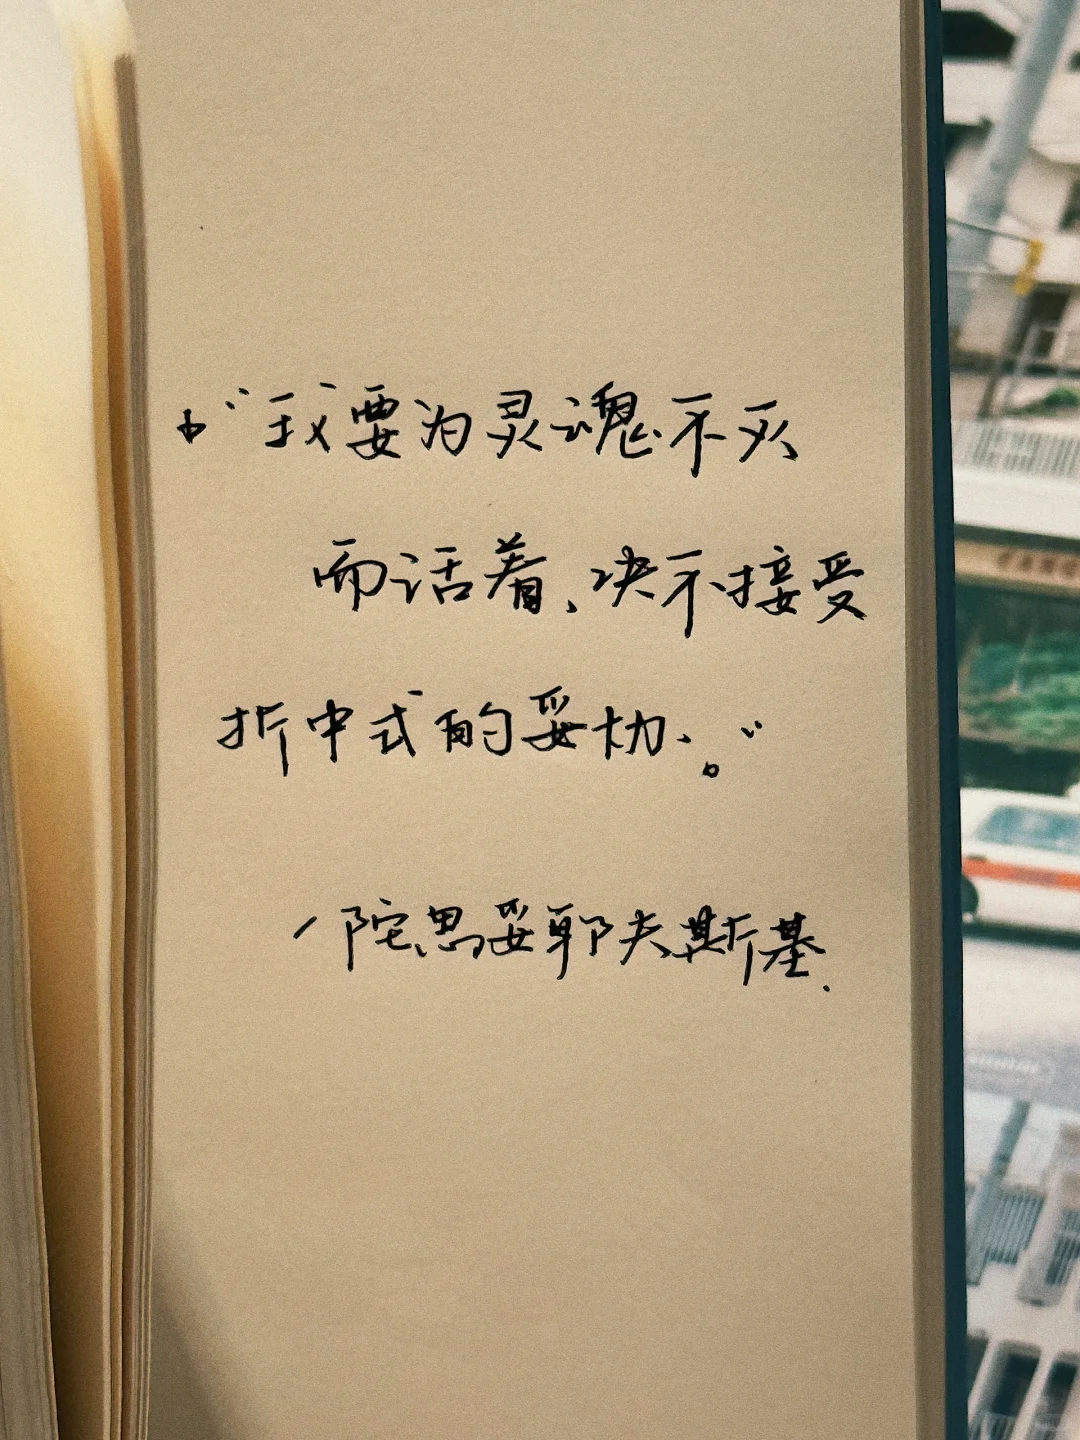 “我要为灵魂不灭
而活着、决不接受
折中式的妥协。”
/陀思妥耶夫斯基.